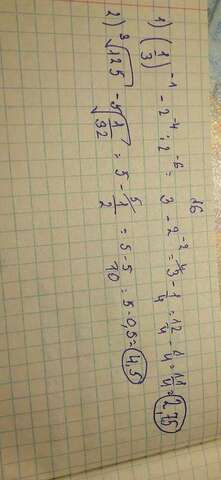 1) (1/3)^-1 - 2^-4 : 2^-6 = 3 - 2^-2 = ^4/3 - 1/4 = 12/4 - 1/4 = 11/4 = 2,75
2) ³√125 - ⁵√1/32 = 5 - ^5/1/2 = 5 - 5/10 = 5 - 0,5 = 4,5